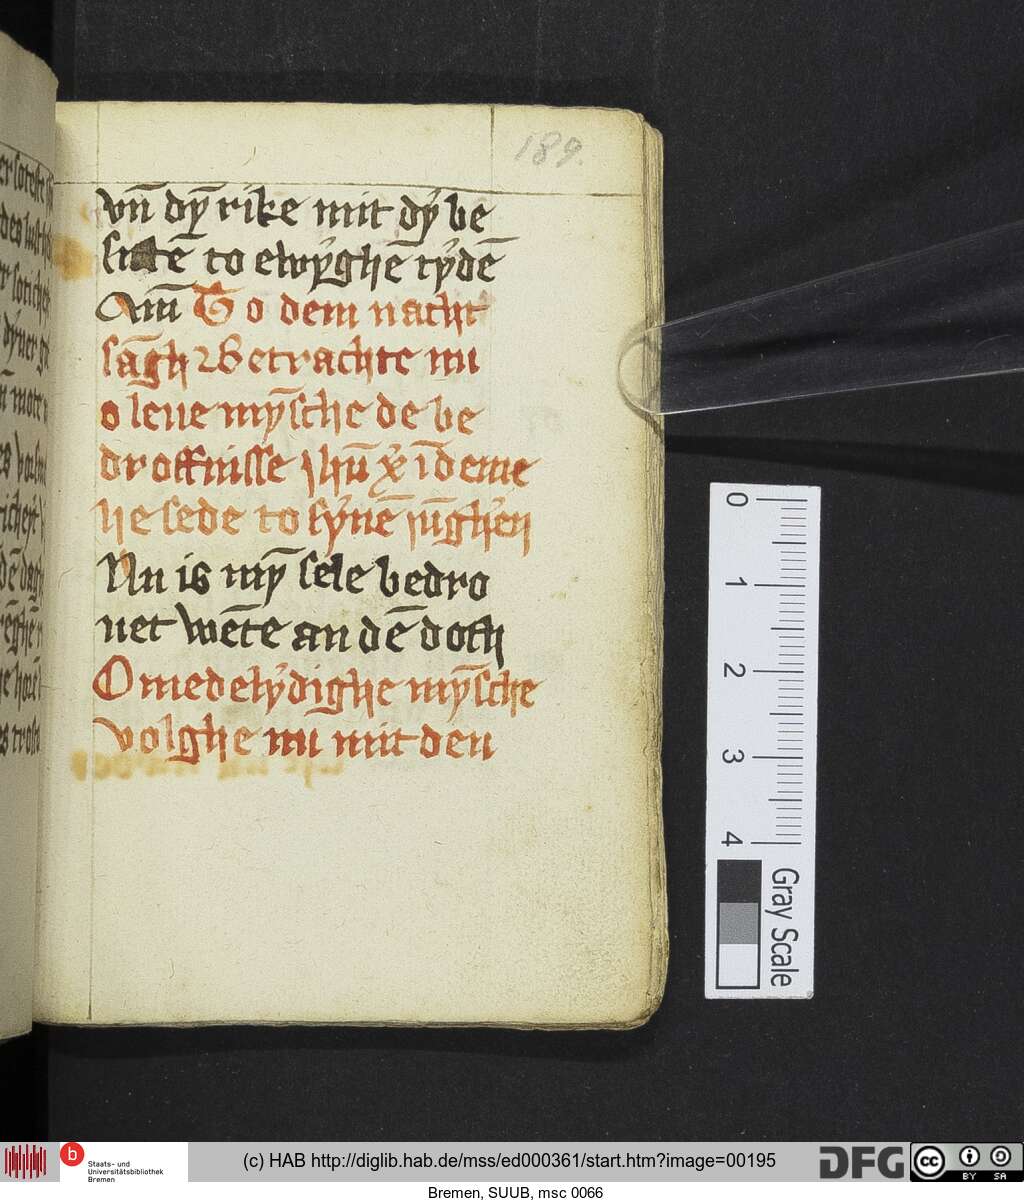 189.
vn̄ dȳ rike mit dẏ be
sittē to ewẏghē tẏdē
Am̄ To dem nacht
sāgh Betrachte nu
o leue mȳsche de be
droffnisse ihū xp̄i ī deme
he sede to sẏnē iūghern
Nu is mȳ sele bedro
uet wēte an dē doth
O medelẏdighe mȳsche
volghe nu mit den
0
1
2
3
4
Gray Scale
b
Staats- und
Universitätsbibliothek
Bremen
(c) HAB http://diglib.hab.de/mss/ed000361/start.htm?image=00195
DFG
cc
BY SA
Bremen, SUUB, msc 0066